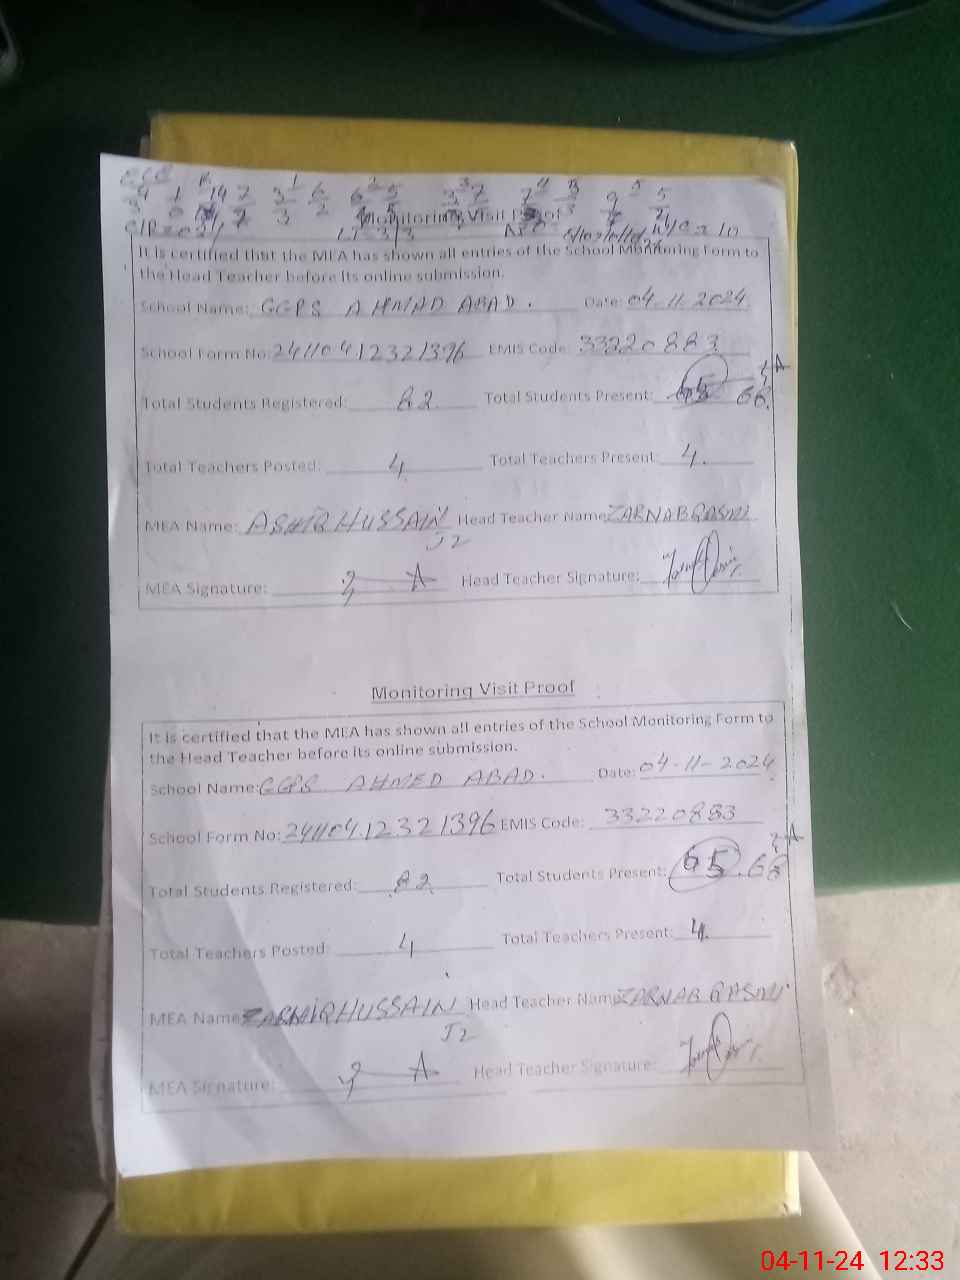 Monitoring Visit Proof
It is certified that the MEA has shown all entries of the School Monitoring Form to
the Head Teacher before its online submission.
School Name: GGPS AHMAD ABAD. Date: 04-11-2024
School Form No: 24110412321396 EMIS Code: 33220883
Total Students Registered: 82 Total Students Present: 65 68
Total Teachers Posted: 4 Total Teachers Present: 4.
MEA Name: ASHIQ HUSSAIN Head Teacher Name ZARNAB QASMI
J2
MEA Signature: Head Teacher Signature:
Monitoring Visit Proof
It is certified that the MEA has shown all entries of the School Monitoring Form to
the Head Teacher before its online submission.
School Name: GGPS AHMED ABAD. Date: 04-11-2024
School Form No: 24110412321396 EMIS Code: 33220883
Total Students Registered: 82 Total Students Present: 65. 68
Total Teachers Posted: 4 Total Teachers Present: 4.
MEA Name HUSSAIN Head Teacher Name ZARNAB QASMI
J2
MEA Signature: Head Teacher Signature:
04-11-24 12:33